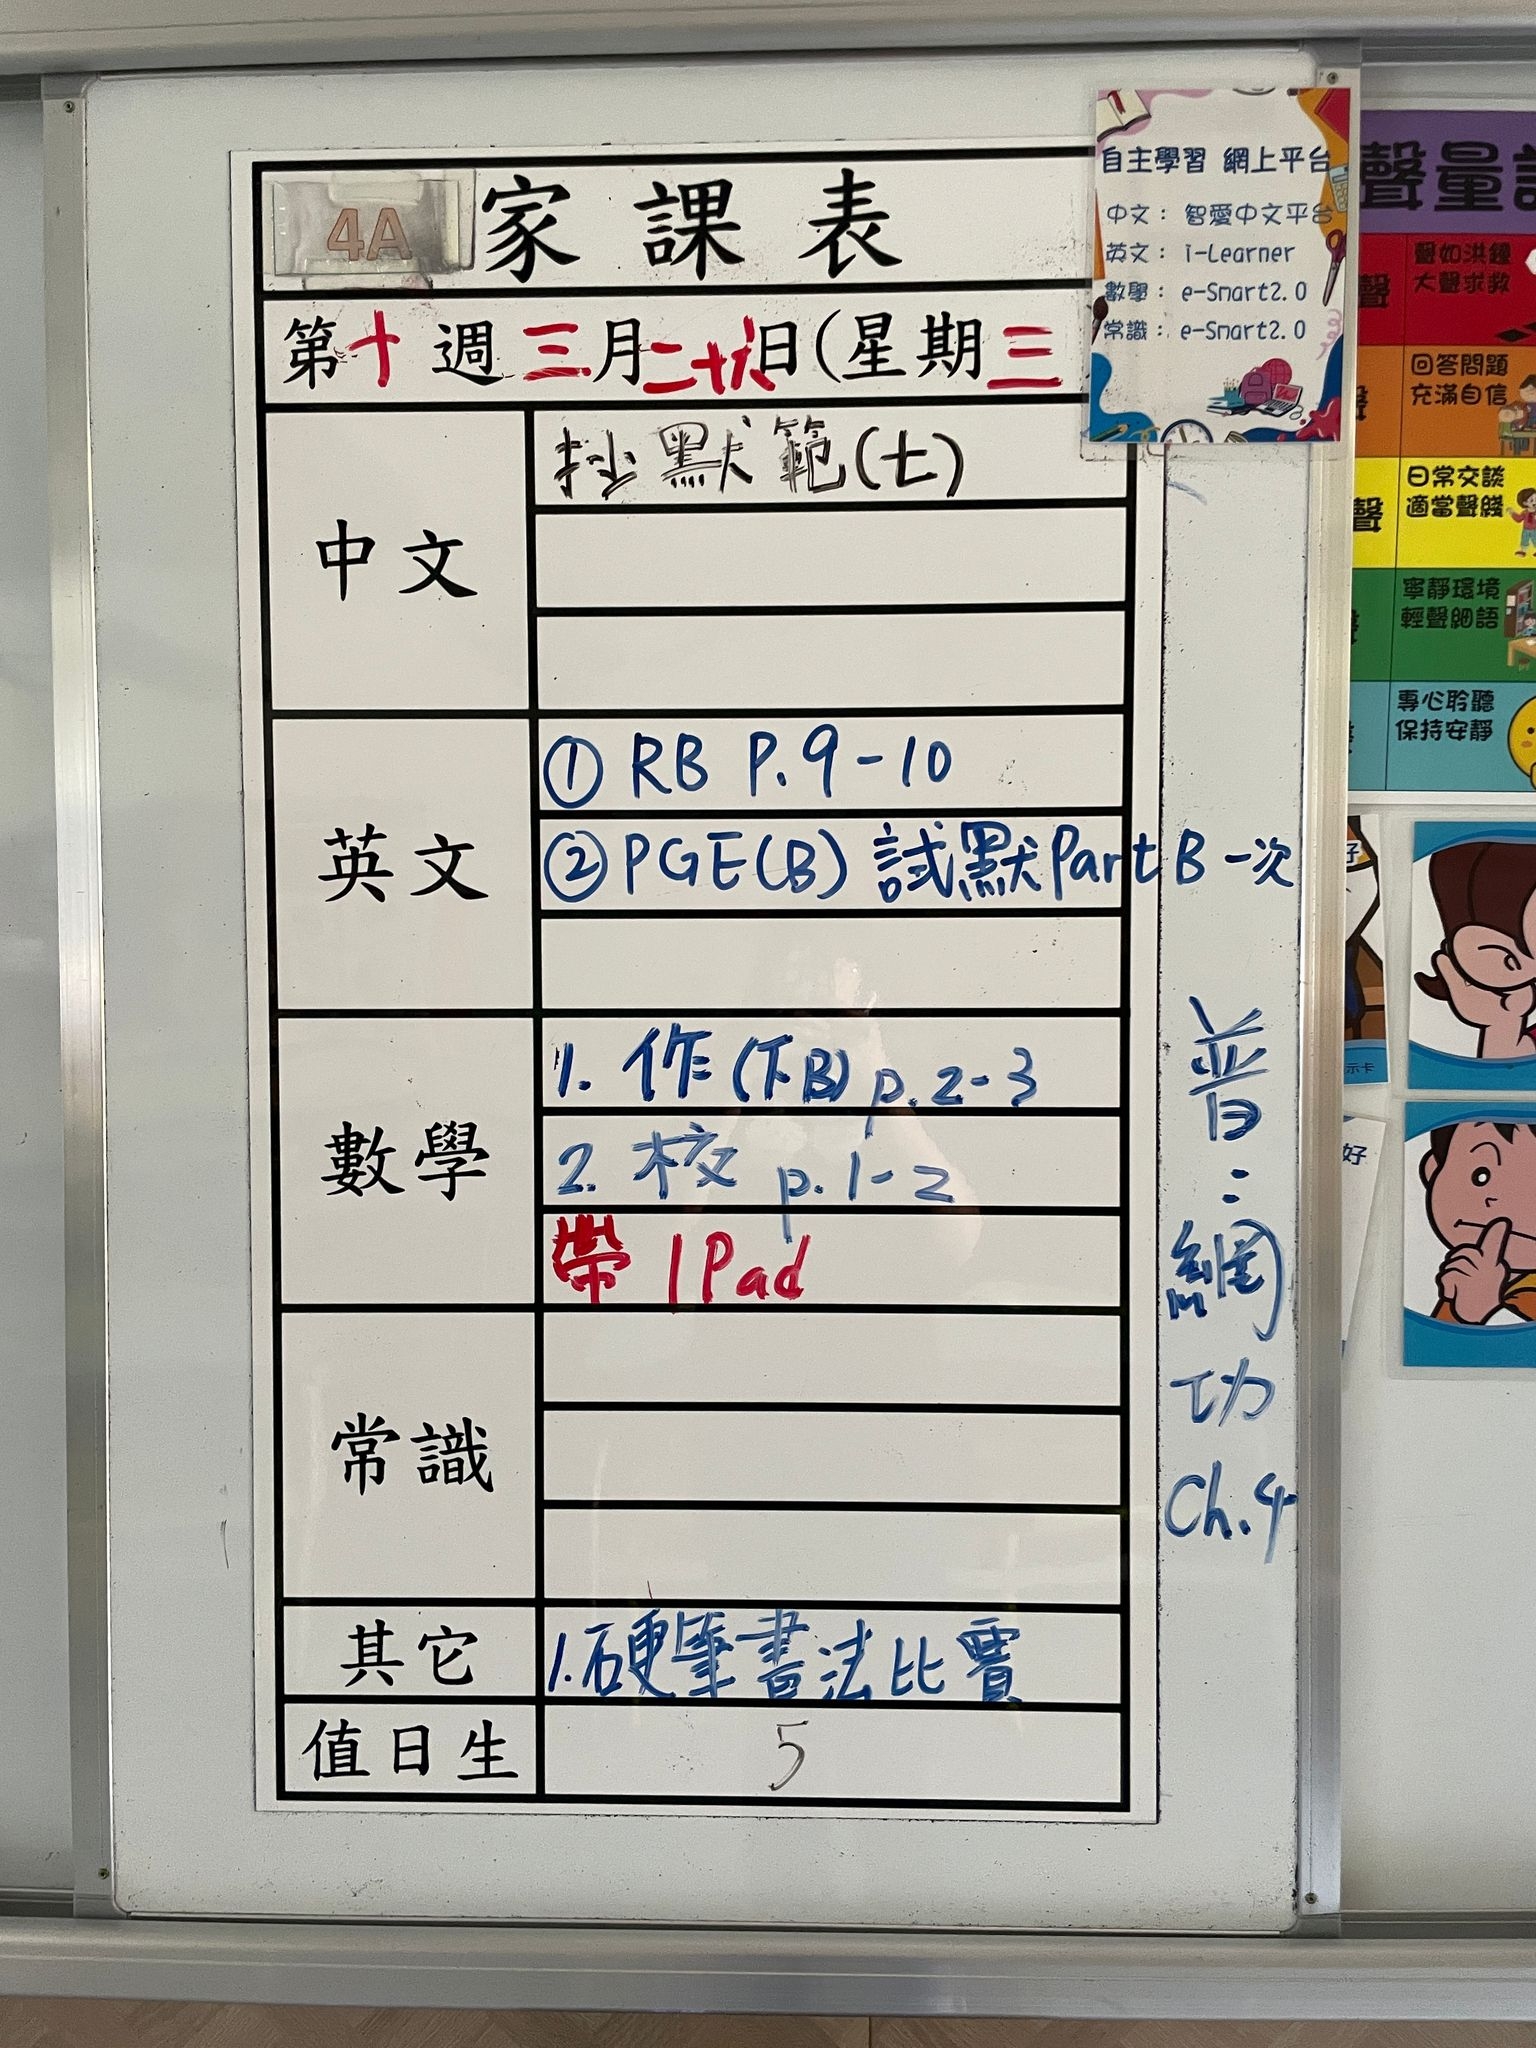 4A 家課表
第十週三月二十六日(星期三
中文
抄默範(七)
英文
① RB P.9-10
② PGE(B) 試默Part B 一次
數學
1. 作(下B) p.2-3
2. 校 p.1-2
帶 IPad
常識
其它
1.硬筆書法比賽
值日生
5
普:網功 Ch.4
自主學習 網上平台
中文： 智愛中文平台
英文： i-Learner
數學： e-Smart2.0
常識： e-Smart2.0
聲量
聲
聲如洪鐘
大聲求救
回答問題
充滿自信
聲
日常交談
適當聲綫
寧靜環境
輕聲細語
專心聆聽
保持安靜
好
示卡
好